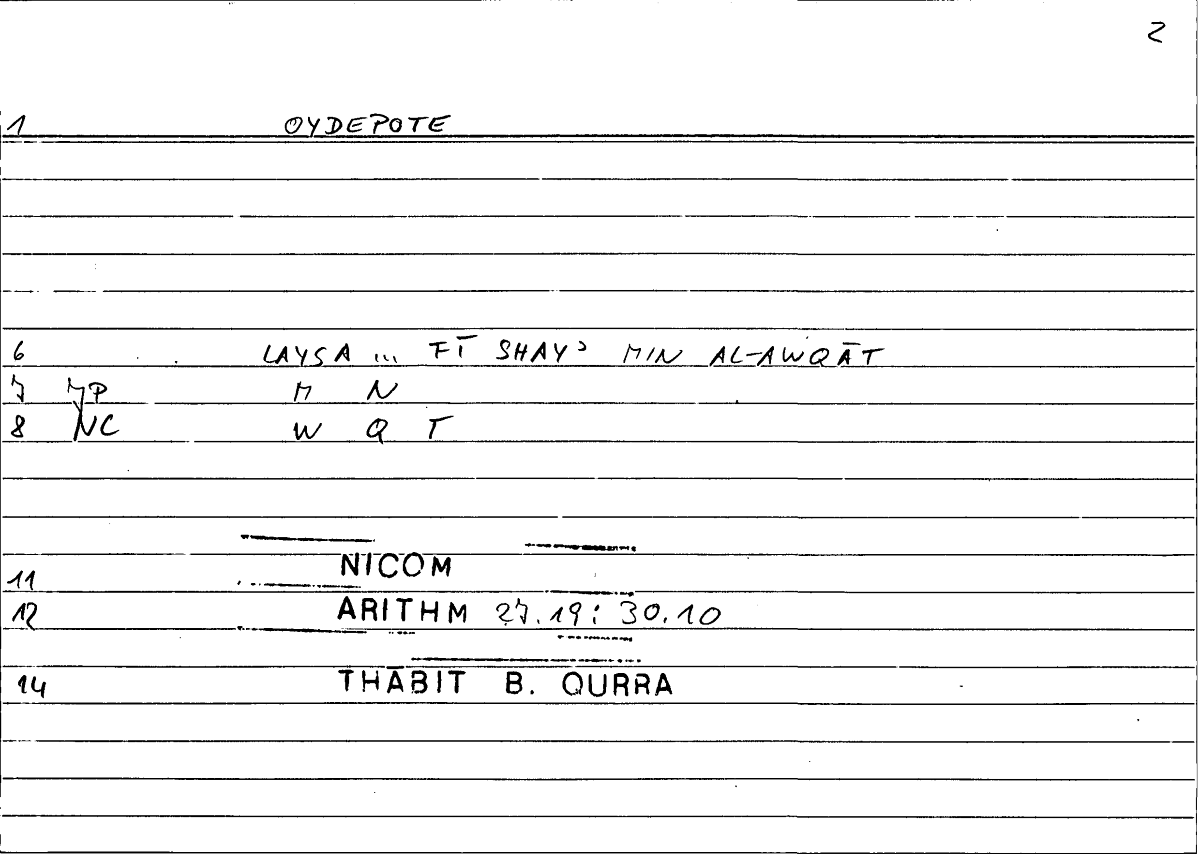 2
1 OYDEPOTE
6 LAYSA ... FĪ SHAYʾ MIN AL-AWQĀT
7 JP M N
8 NC W Q T
11 NICOM
12 ARITHM 27.19: 30.10
14 THĀBIT B. QURRA